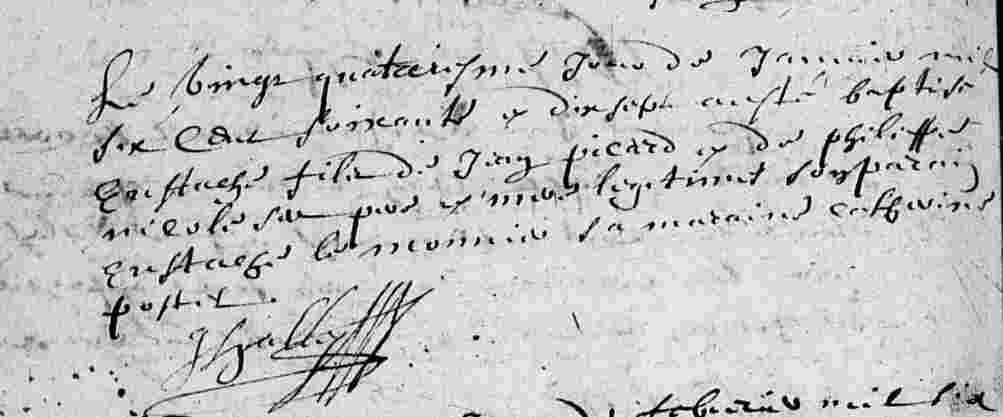 Le vingt quatriesme jour de Janvier mil
six cent soixante et dixsept a esté baptisé
Eustache fils de Jean picard et de philippe
nicole ses pere et mere legitimes son parain
Eustache le monnier sa maraine catherine
postel.
JHally
febvrier mil six